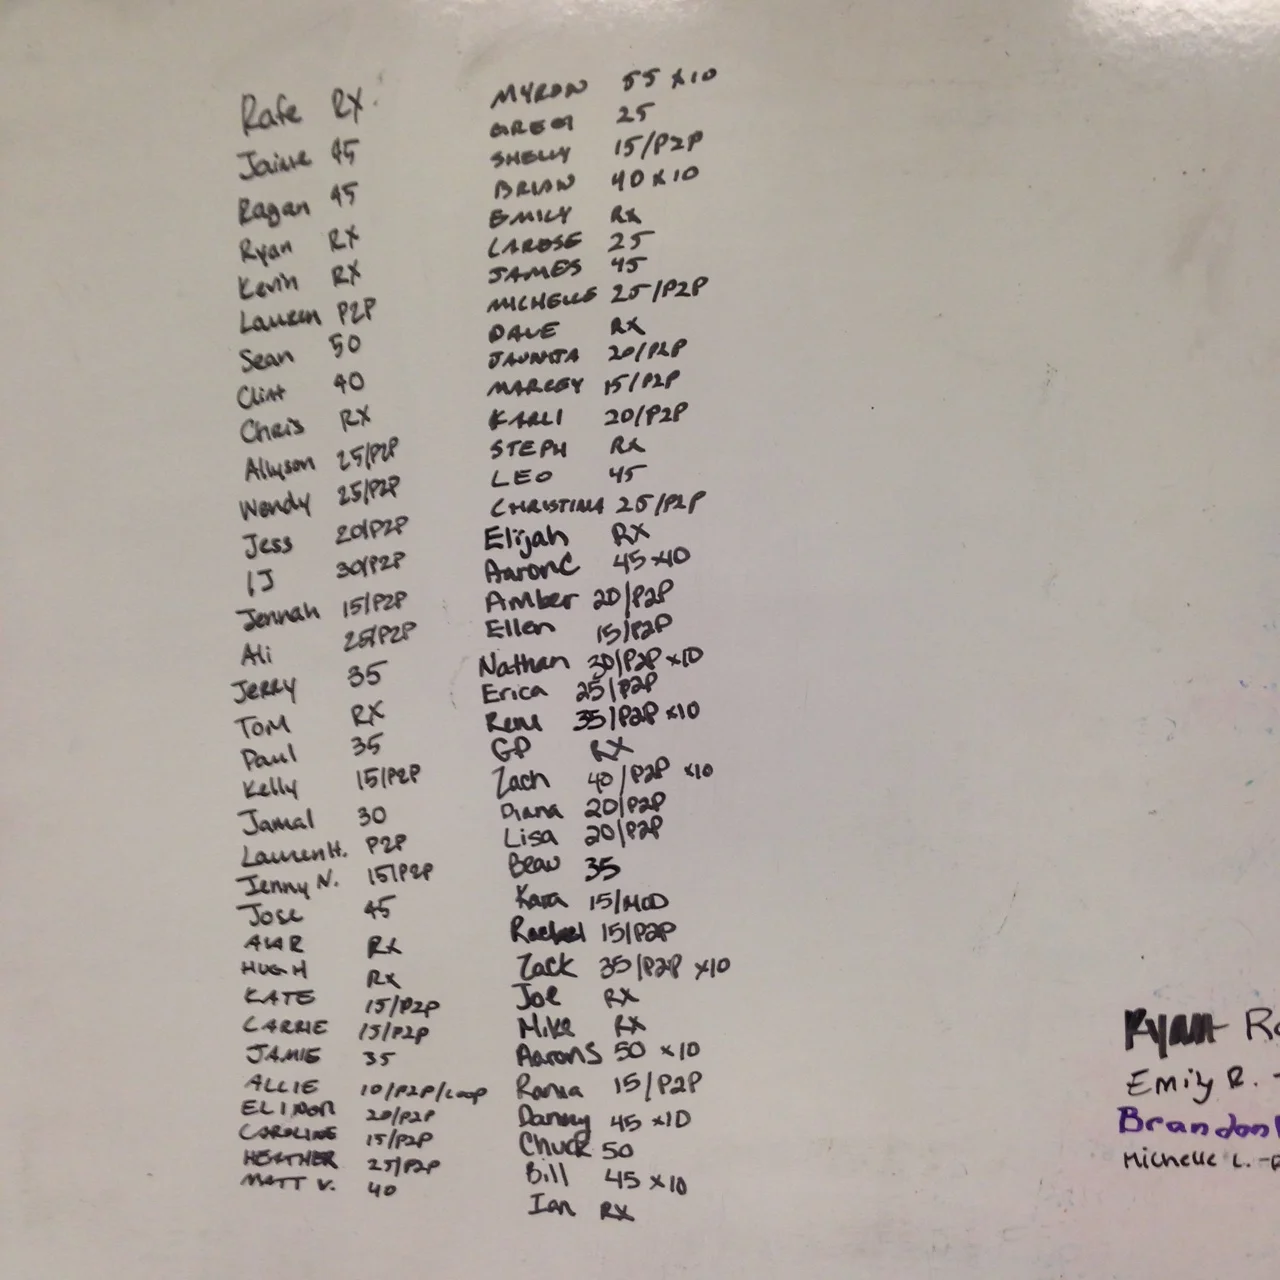 Rafe RX
Jaime 45
Ragan 45
Ryan RX
Kevin RX
Lauren P2P
Sean 50
Clint 40
Chris RX
Allyson 25/P2P
Wendy 25/P2P
Jess 20/P2P
IJ 30/P2P
Jennah 15/P2P
Ali 25/P2P
JERRY 35
TOM RX
Paul 35
Kelly 15/P2P
Jamal 30
Lauren H. P2P
Jenny N. 15/P2P
Jose 45
RX
HUGH RX
KATE 15/P2P
CARRIE 15/P2P
JAMIE 35
ALLIE 10/P2P/Loop
ELINOR 20/P2P
CAROLINE 15/P2P
HEATHER 25/P2P
MATT V. 40
MYRON 55 x10
GREG 25
SHELLY 15/P2P
BRIAN 40 x10
EMILY Rx
LAROSE 25
JAMES 45
MICHELLE 25/P2P
DAVE RX
JAUNITA 20/P2P
MARCEY 15/P2P
KARLI 20/P2P
STEPH Rx
LEO 45
CHRISTINA 25/P2P
Elijah RX
Aaron C 45 x10
Amber 20/P2P
Ellen 15/P2P
Nathan 30/P2P x10
Erica 25/P2P
Rene 35/P2P x10
GP RX
Zach 40/P2P x10
Diana 20/P2P
Lisa 20/P2P
Beau 35
Kara 15/MOD
Rachel 15/P2P
Zack 35/P2P x10
Joe RX
Mike RX
Aaron S 50 x10
15/P2P
Danny 45 x10
Chuck 50
Bill 45 x10
Ian RX
Ryan
Emily R. -
Brandon
Michelle L. -